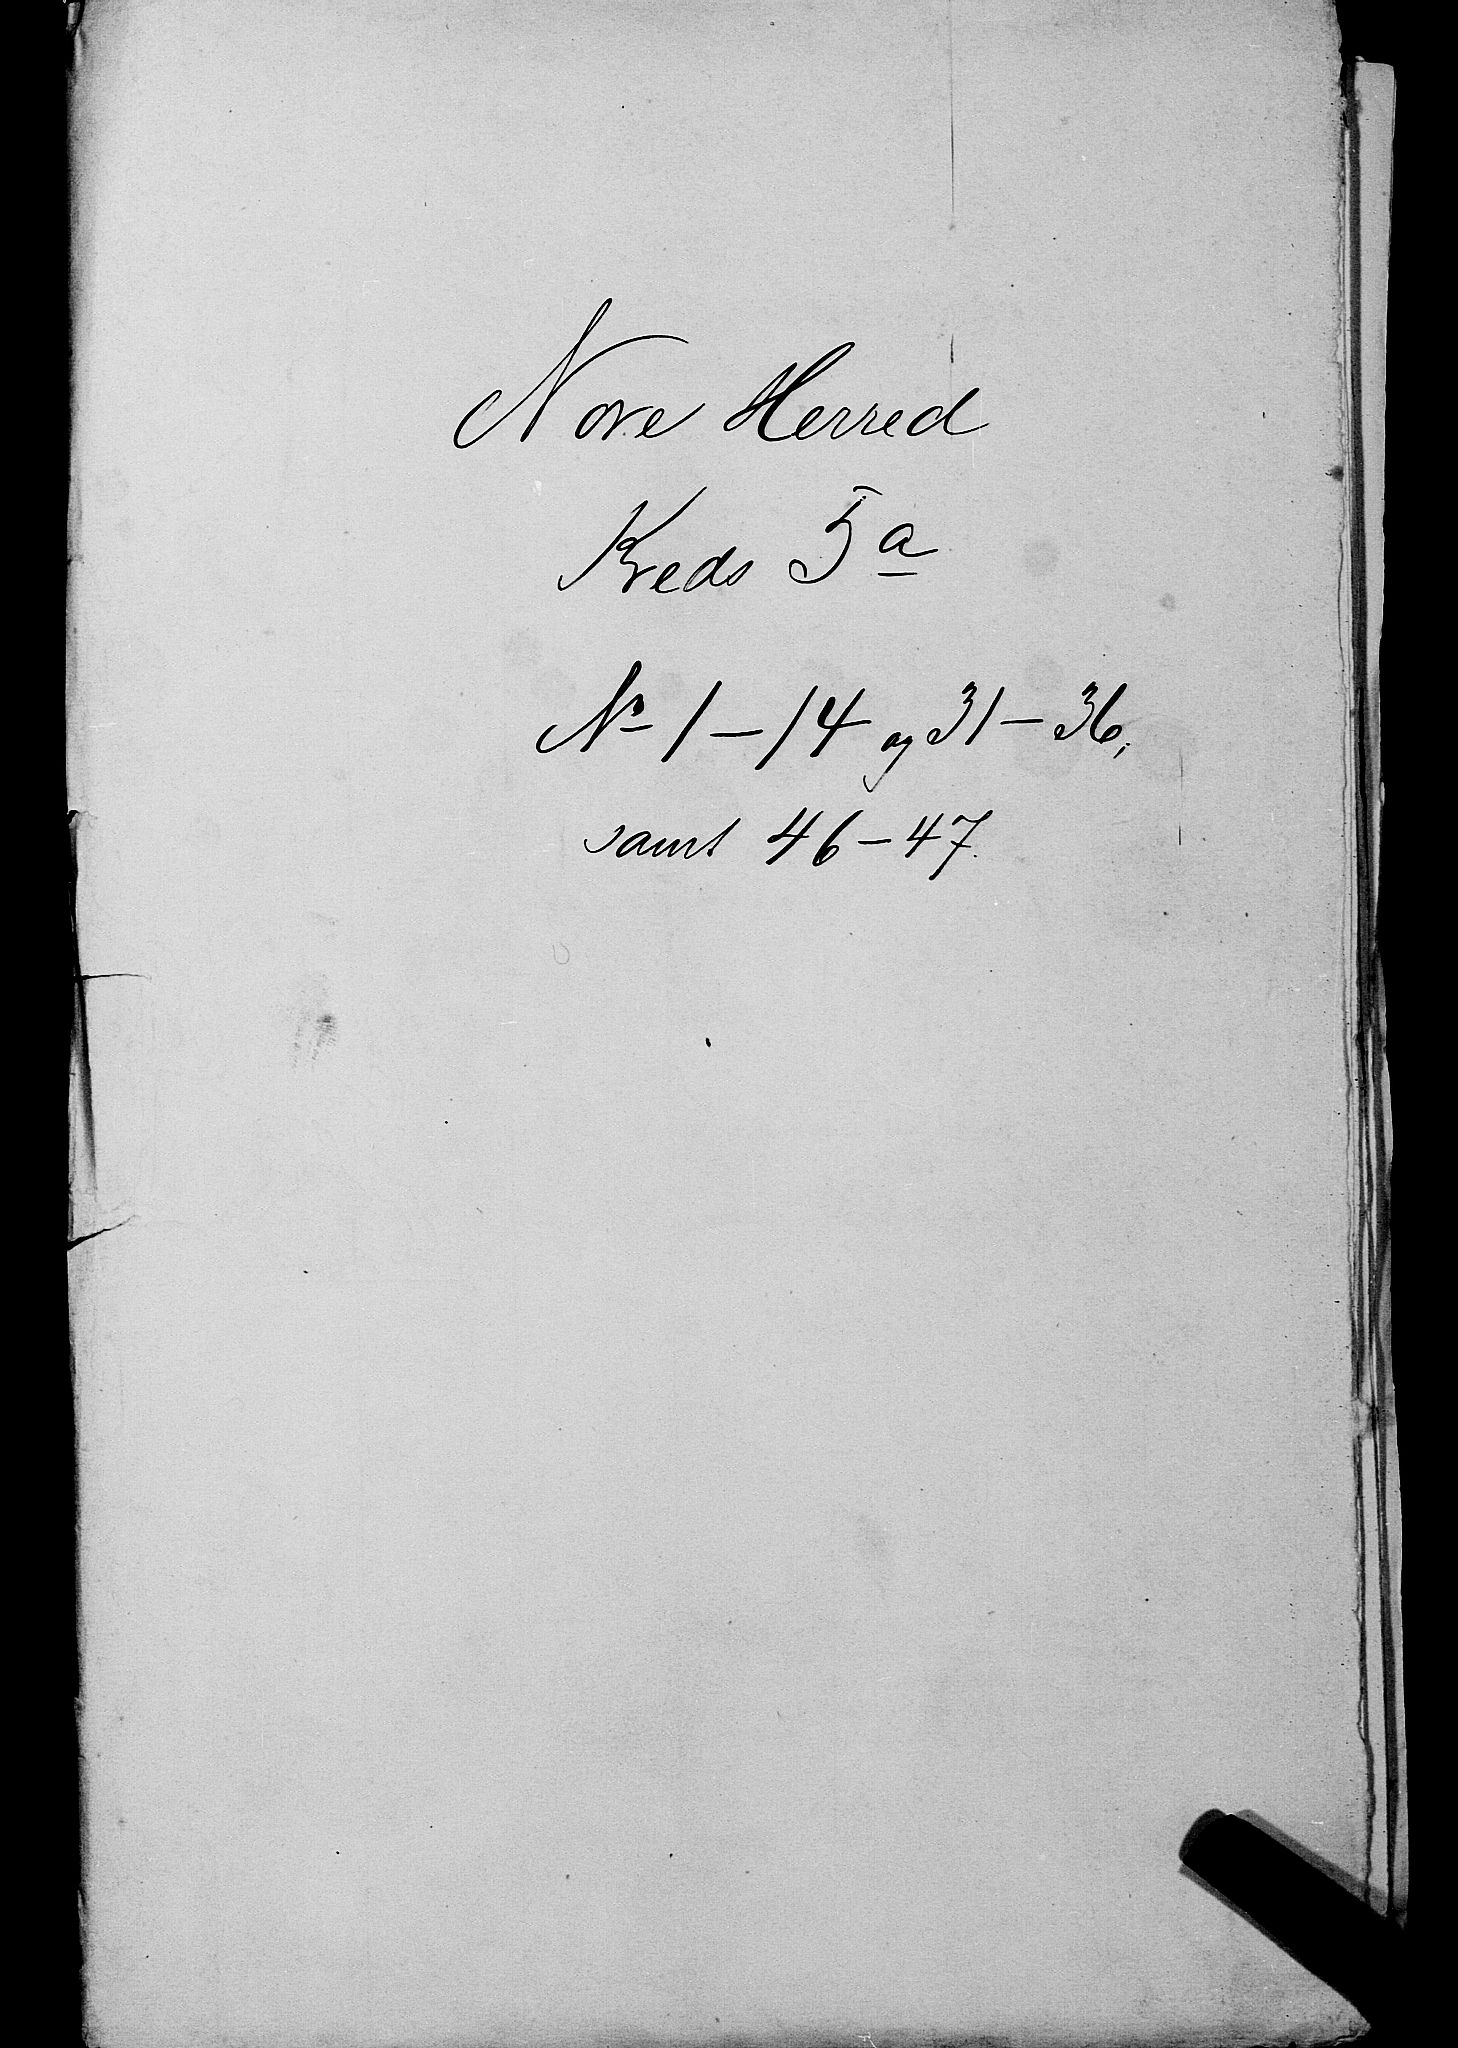 Nore Herred
Kreds 5a
No 1 - 14 og 31 - 36,
samt 46 - 47.